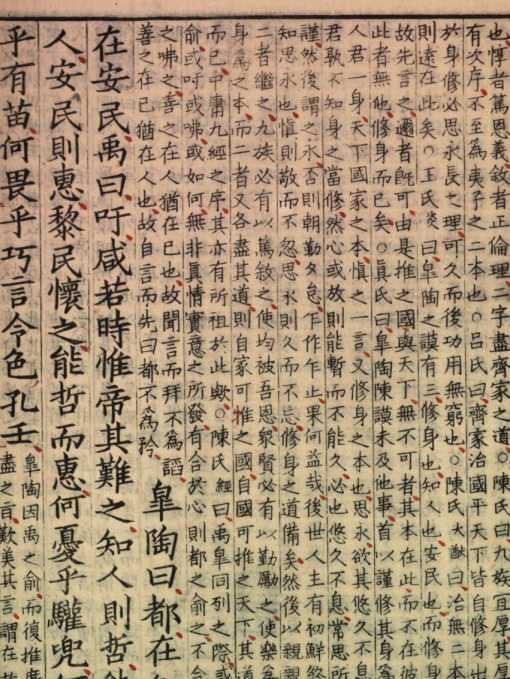 也惇者篤恩義敘者正倫理二字盡齊家之道。陳氏曰九族宜厚其恩或
有次序不至為夷子之二本也。呂氏曰齊家治國平天下皆自修身出
於身修必思永長之理可久而後功用無窮也。陳氏大猷曰治無二本
則遠在此矣。王氏炎曰皐陶之謨有三修身也知人也安民也而修身
故先言之邇者旣可由是推之國與天下無不可者其本在此而不在彼
此者無他修身而已矣。眞氏曰皐陶陳謨未及他事首以謹修其身
人君一身天下國家之本慎之一言又修身之本也思永欲其悠久不息
君孰不知身之當修然心或放則能暫而不能久必也悠久不息常思所
謹然後謂之永否則朝勤夕怠乍作乍止果何益哉後世人主有初鮮終
知思永也慎則敬而不忽思永則久而不忘修身之道備矣然後以親親
二者繼之九族必有以篤敘之使均被吾恩眾賢必有以勤勵之使樂為
身為之本而二者又各盡其道則自家可推之國自國可推之天下其道
而已中庸九經之序其亦有所祖於此歟。陳氏經曰禹皐同列之際或
俞或吁或咈或如何無非眞情實意之所發有合於心則都之俞之不合
之咈之善之在人猶在已也故聞言而拜不為諂
善之在已猶在人也故自言而先曰都不為矜
皐陶曰都在
在安民禹曰吁咸若時惟帝其難之知人則哲能
人安民則惠黎民懷之能哲而惠何憂乎驩兜何
乎有苗何畏乎巧言令色孔壬
皐陶因禹之俞而復推廣
盡之旨歎美其言謂在